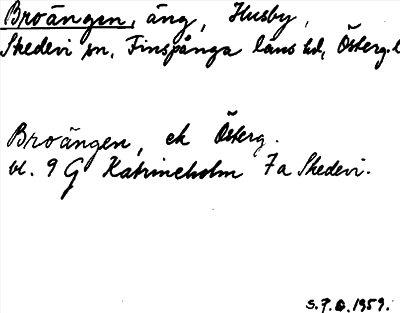 Broängen, äng, Husby,
Skedevi sn, Finspånga läns hd, Österg. l
Broängen, ek Österg.
bl. 9 G Katrineholm 7a Skedevi.
S.P.G. 1959.